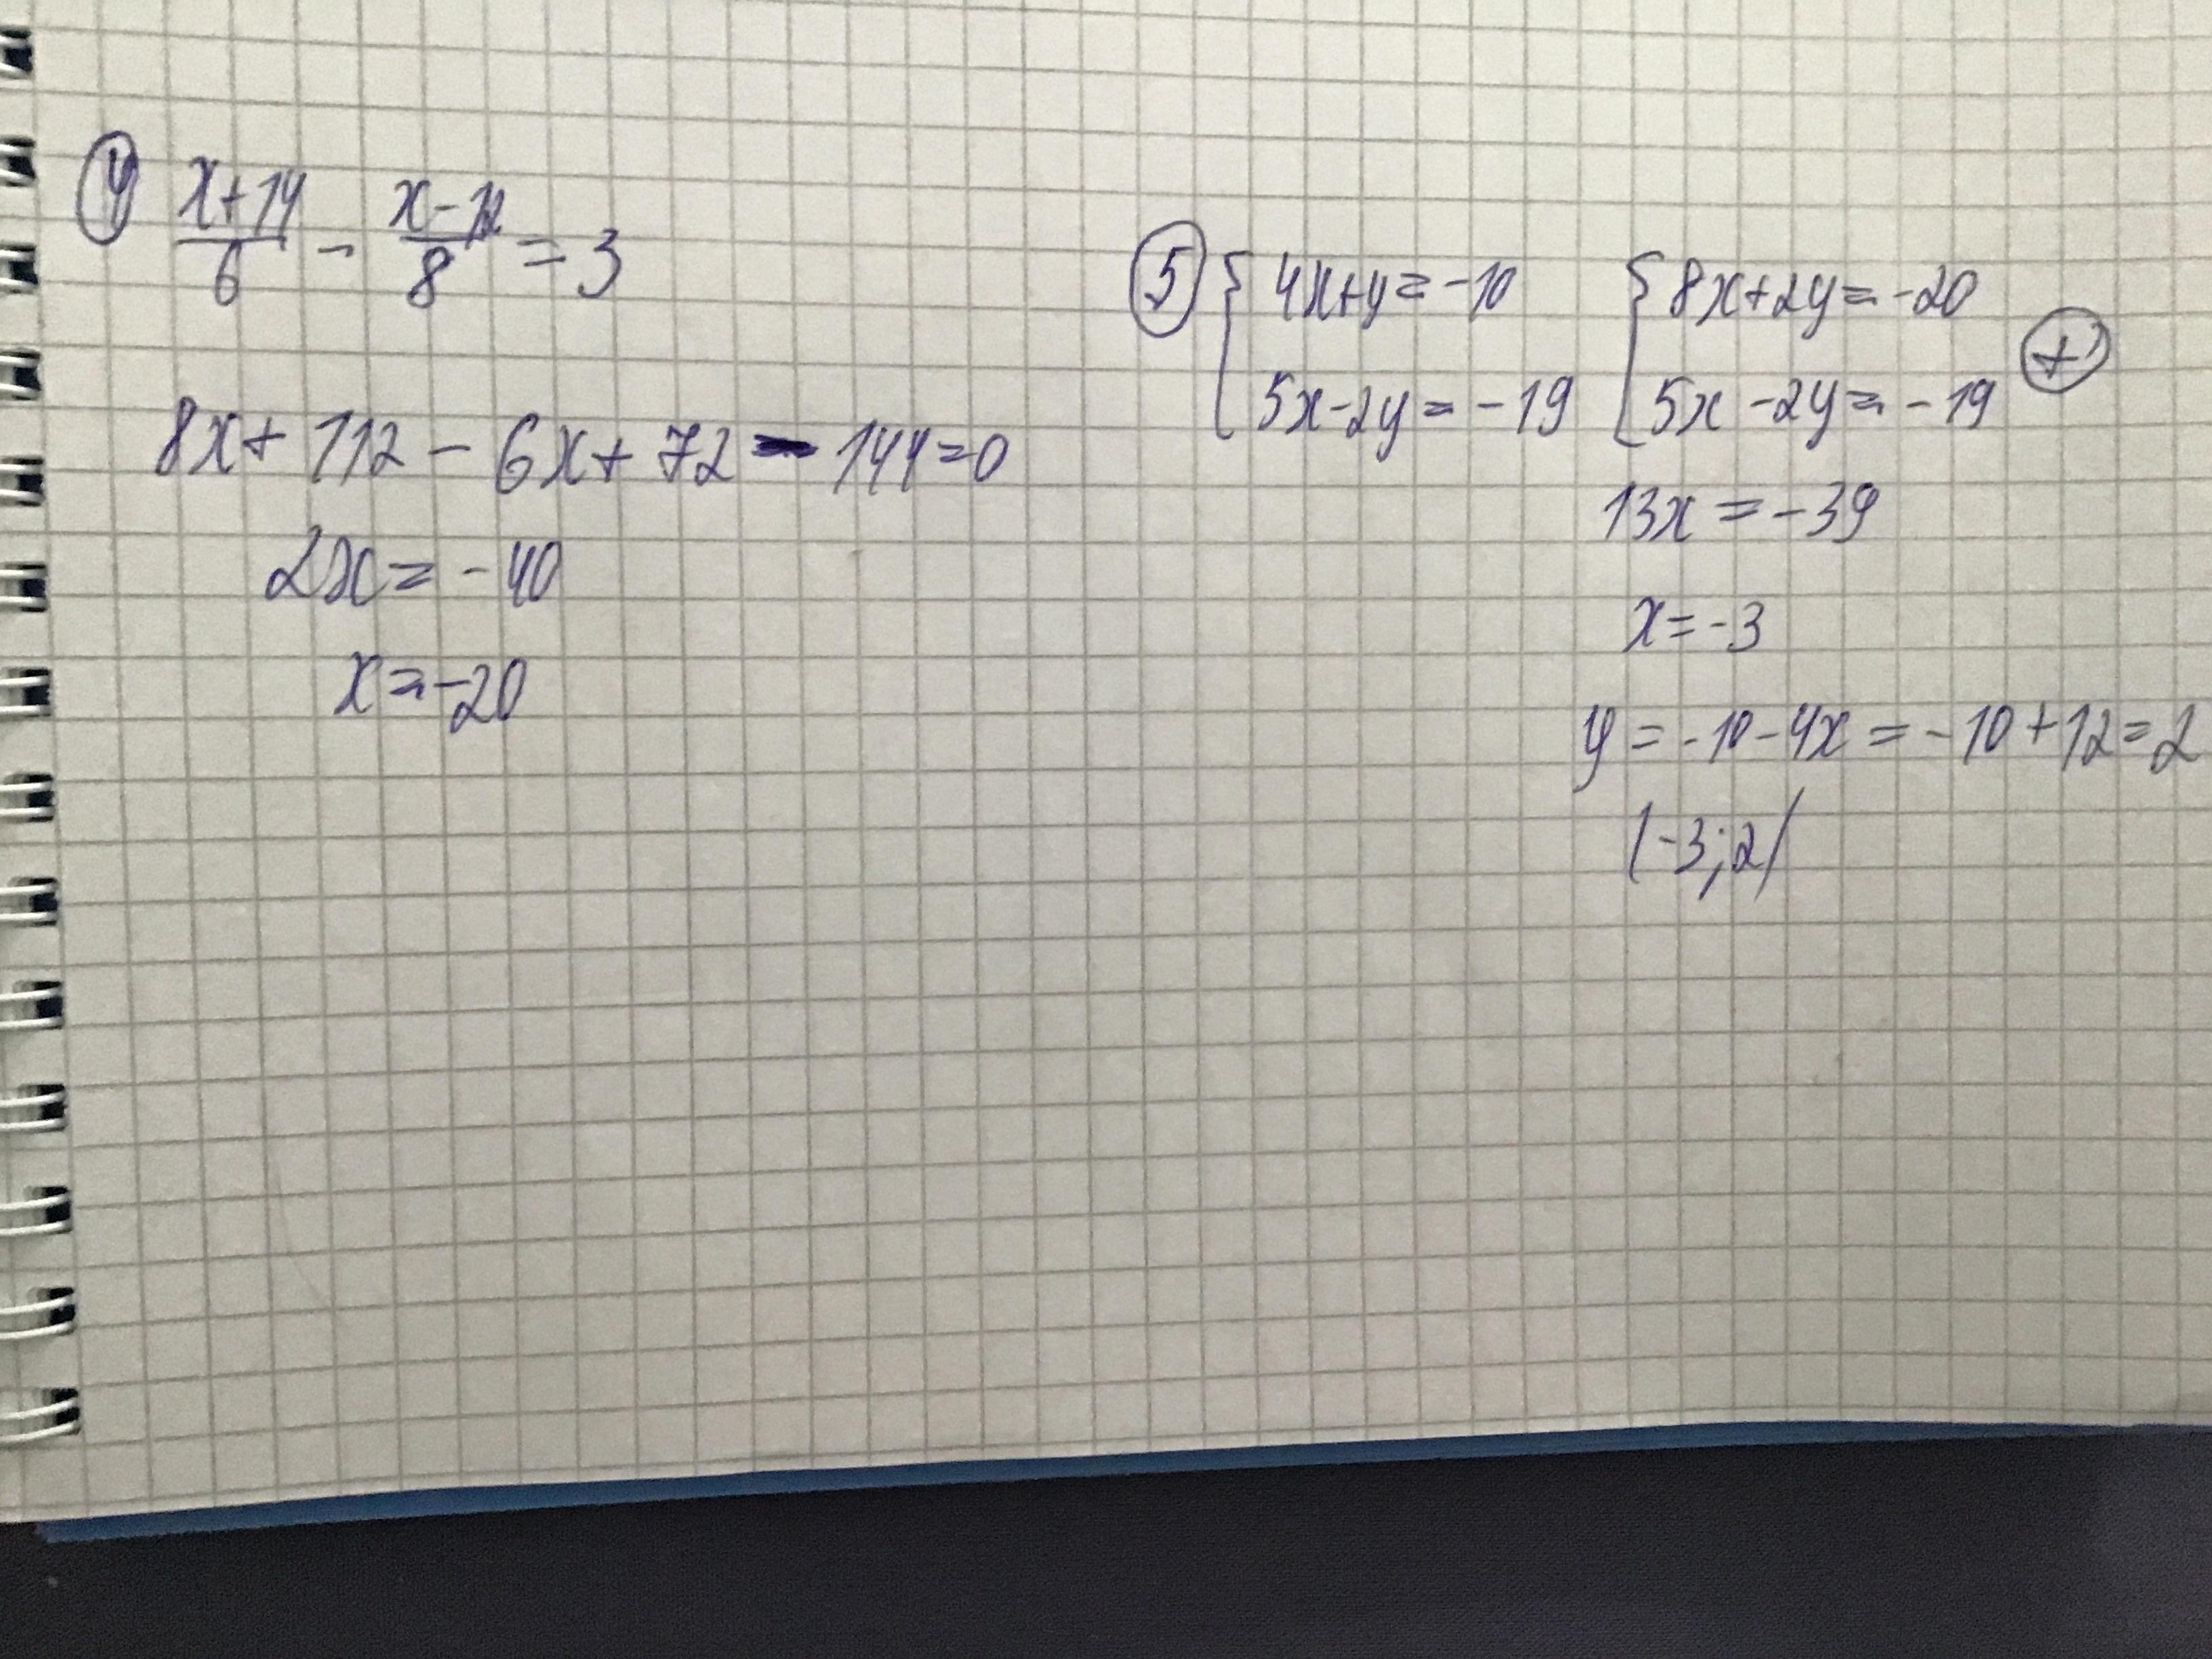 ④ (x+14)/6 - (x-12)/8 = 3
8x + 112 - 6x + 72 - 144 = 0
2x = -40
x = -20
⑤ { 4x+y = -10 { 8x+2y = -20
5x-2y = -19 5x-2y = -19 (+)
13x = -39
x = -3
y = -10-4x = -10+12 = 2
(-3;2)